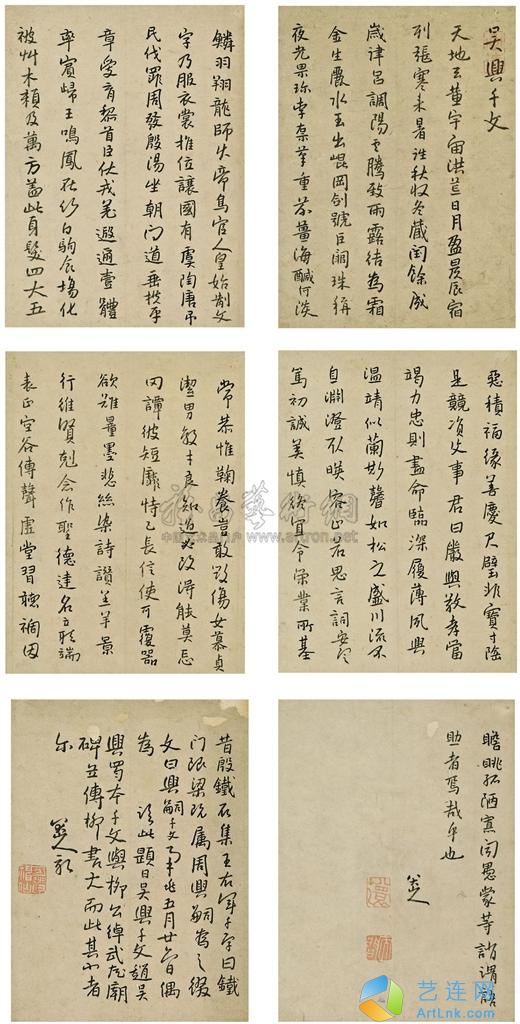 吴興千文
天地玄黄宇宙洪荒日月盈昃辰宿
列張寒来暑往秋收冬藏閏餘成
歳律吕調陽雲騰致雨露结為霜
金生麗水玉出崐岡剑號巨闕珠稱
夜光果珍李柰菜重芥薑海醎河淡
鱗羽翔龍師火帝鳥官人皇始制文
字乃服衣裳推位讓國有虞陶唐吊
民伐罪周發殷湯坐朝问道垂拱平
章愛育黎首臣伏戎羌遐邇壹體
率賓歸王鳴鳳在竹白駒食場化
被艸木賴及萬方蓋此身髮四大五
常恭惟鞠養豈敢毁傷女慕貞
潔男效才良知過必改得能莫忘
罔譚彼短靡恃己長信使可覆器
欲難量墨悲絲染詩讚羔羊景
行維賢剋念作聖德建名立形端
表正空谷傳聲虚堂習聽禍因
惡積福緣善慶尺璧非寶寸陰
是競资父事君曰嚴與敬孝當
竭力忠則盡命臨深履薄夙興
温凊似蘭斯馨如松之盛川流不
息淵澄取暎容止若思言詞安定
篤初誠美慎終宜令荣業所基
瞻眺孤陋寡闻愚蒙等誚謂語
助者焉哉乎也
八大山人
昔殷鐵石集王右军千字曰鐵
门限梁属周興嗣為之缀
文曰興嗣千文五月廿六日偶
為 此題曰吴興千文趙吴
興蜀本千文與柳公綽武侯廟
碑並傳柳書大而此其小者
尔 八大山人
雅昌藝術網
www.artron.net
艺连网
ArtLnk.com